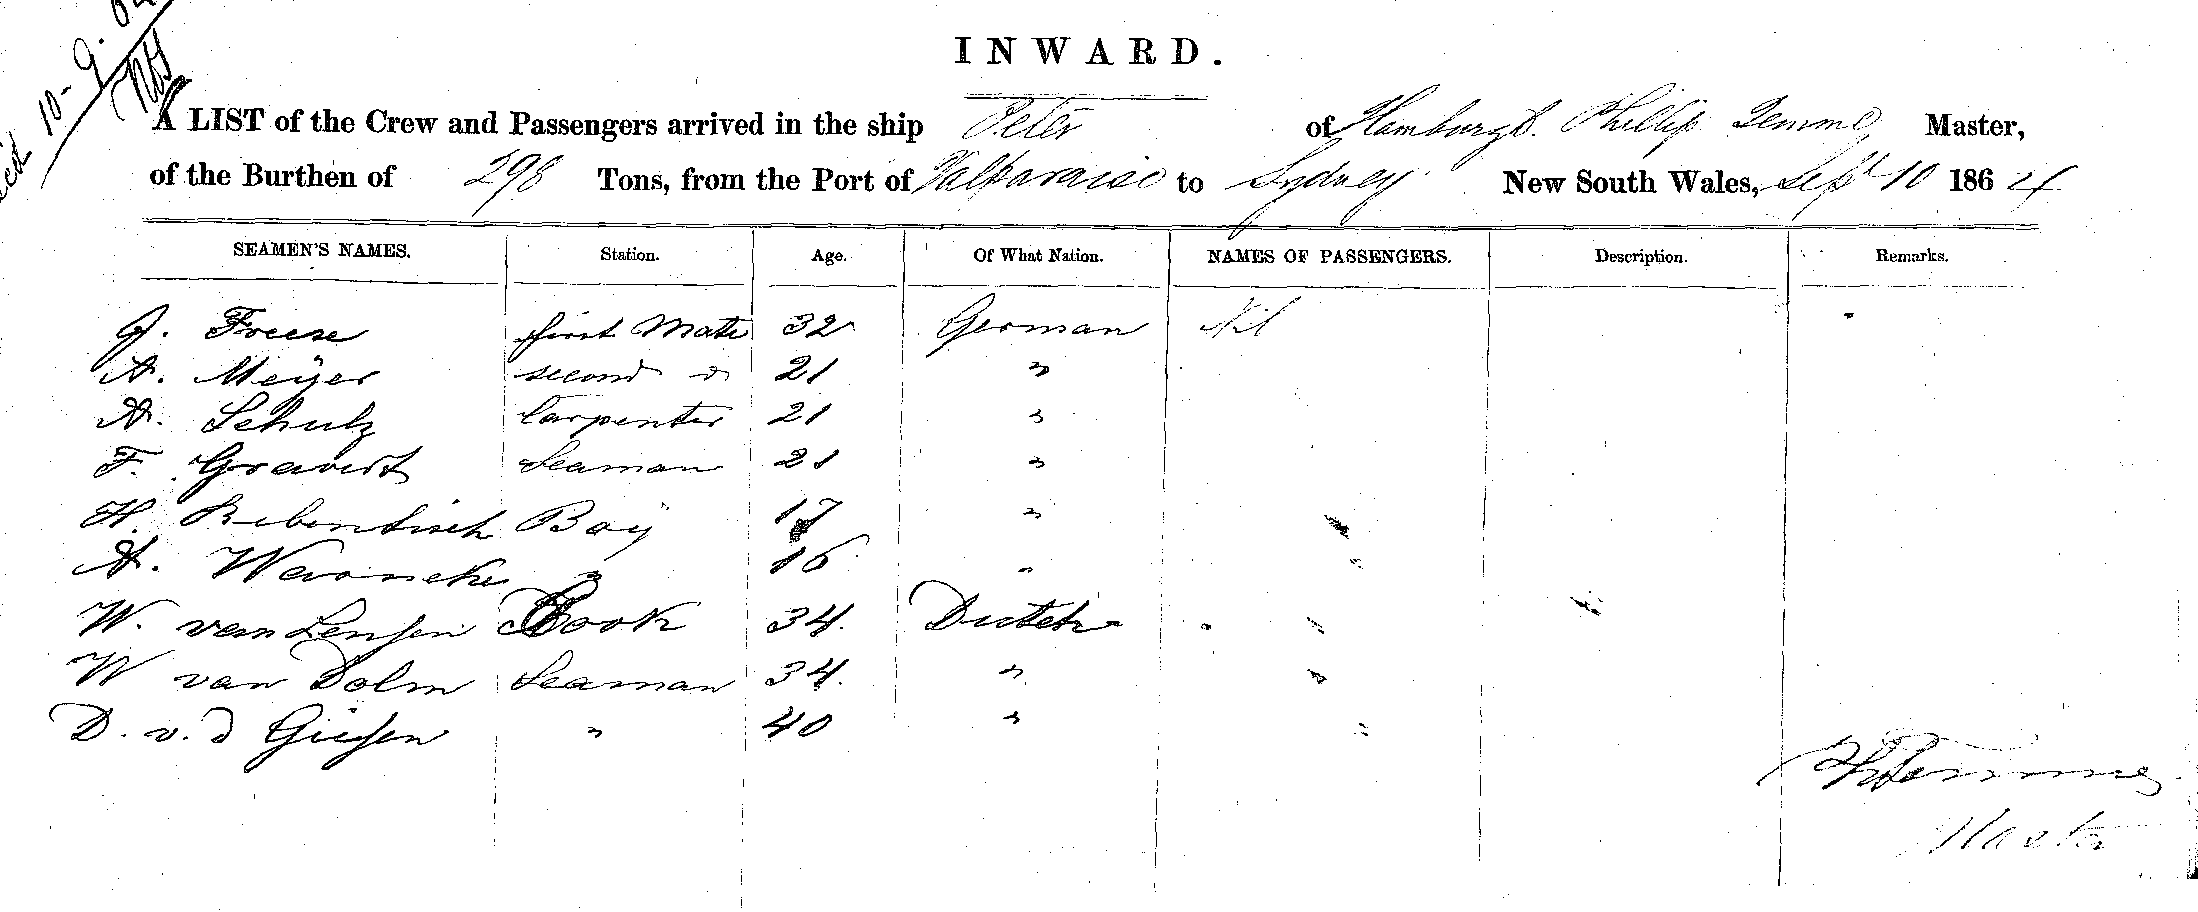 10-9.
INWARD.
A LIST of the Crew and Passengers arrived in the ship Peter of Hamburg Phillip Temme Master,
of the Burthen of 298 Tons, from the Port of Valparaiso to Sydney New South Wales, Sept 10 1864
SEAMEN'S NAMES. Station. Age. Of What Nation. NAMES OF PASSENGERS. Description. Remarks.
J. Freese first Mate 32 German Nil
A. Meyer second do 21 "
A. Schulz Carpenter 21 "
F. Gravert Seaman 21 "
H. Rebentisch Boy 17 "
A. Warneke " 16 "
W. van Lensen Cook 34. Dutch
W van Dolm Seaman 34. "
D. v. d Giesen " 40 "
Temme
Master